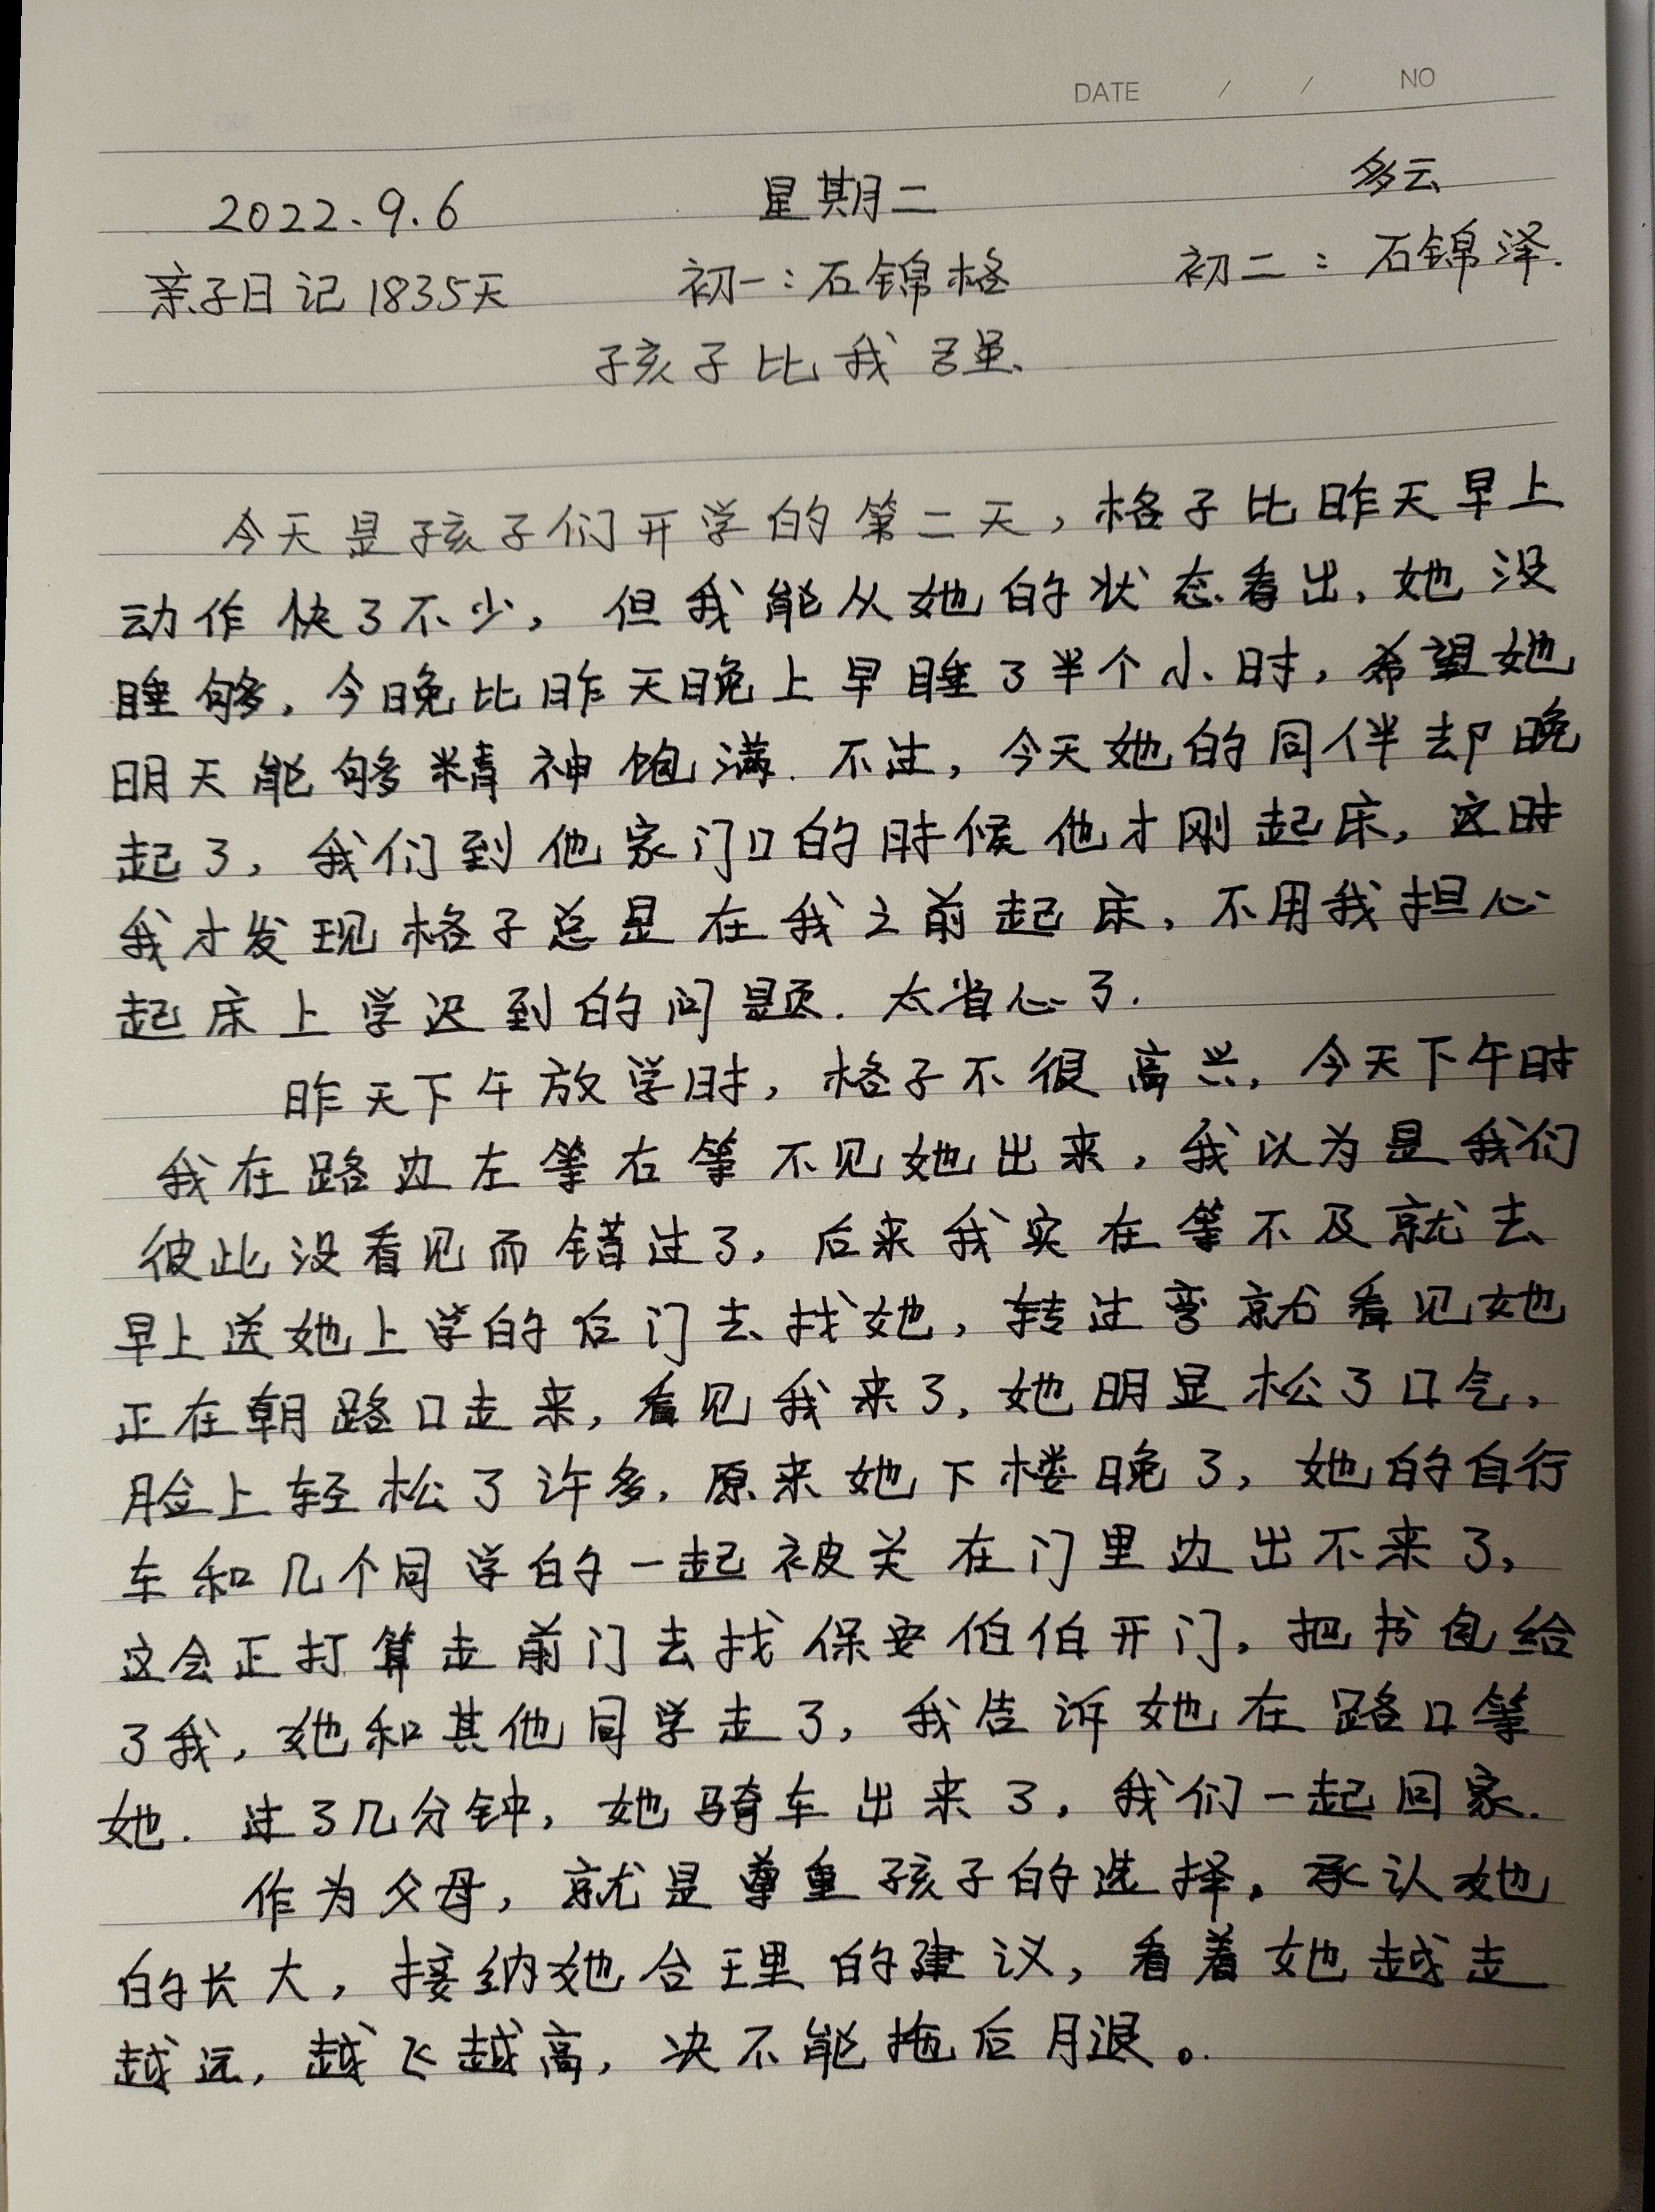 DATE / / NO
2022.9.6 星期二 多云
亲子日记1835天 初一:石锦格 初二:石锦泽.
孩子比我强.
今天是孩子们开学的第二天,格子比昨天早上
动作快了不少,但我能从她的状态看出,她没
睡够,今晚比昨天晚上早睡了半个小时,希望她
明天能够精神饱满.不过,今天她的同伴却晚
起了,我们到他家门口的时候他才刚起床,这时
我才发现格子总是在我之前起床,不用我担心
起床上学迟到的问题.太省心了.
昨天下午放学时,格子不很高兴,今天下午时
我在路边左等右等不见她出来,我以为是我们
彼此没看见而错过了,后来我实在等不及就去
早上送她上学的后门去找她,转过弯就看见她
正在朝路口走来,看见我来了,她明显松了口气,
脸上轻松了许多,原来她下楼晚了,她的自行
车和几个同学的一起被关在门里边出不来了,
这会正打算走前门去找保安伯伯开门,把书包给
了我,她和其他同学走了,我告诉她在路口等
她.过了几分钟,她骑车出来了,我们一起回家.
作为父母,就是尊重孩子的选择,承认她
的长大,接纳她合理的建议,看着她越走
越远,越飞越高,决不能拖后腿。